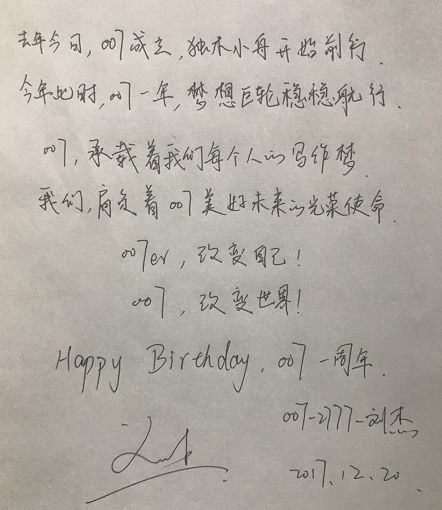 去年今日,007成立,独木小舟开始前行.
今年此时,007一年,梦想巨轮稳稳航行.
007,承载着我们每个人的写作梦.
我们,肩负着007美好未来的光荣使命.
007er,改变自己!
007,改变世界!
Happy Birthday,007一周年.
007-2777-刘杰
2017.12.20.